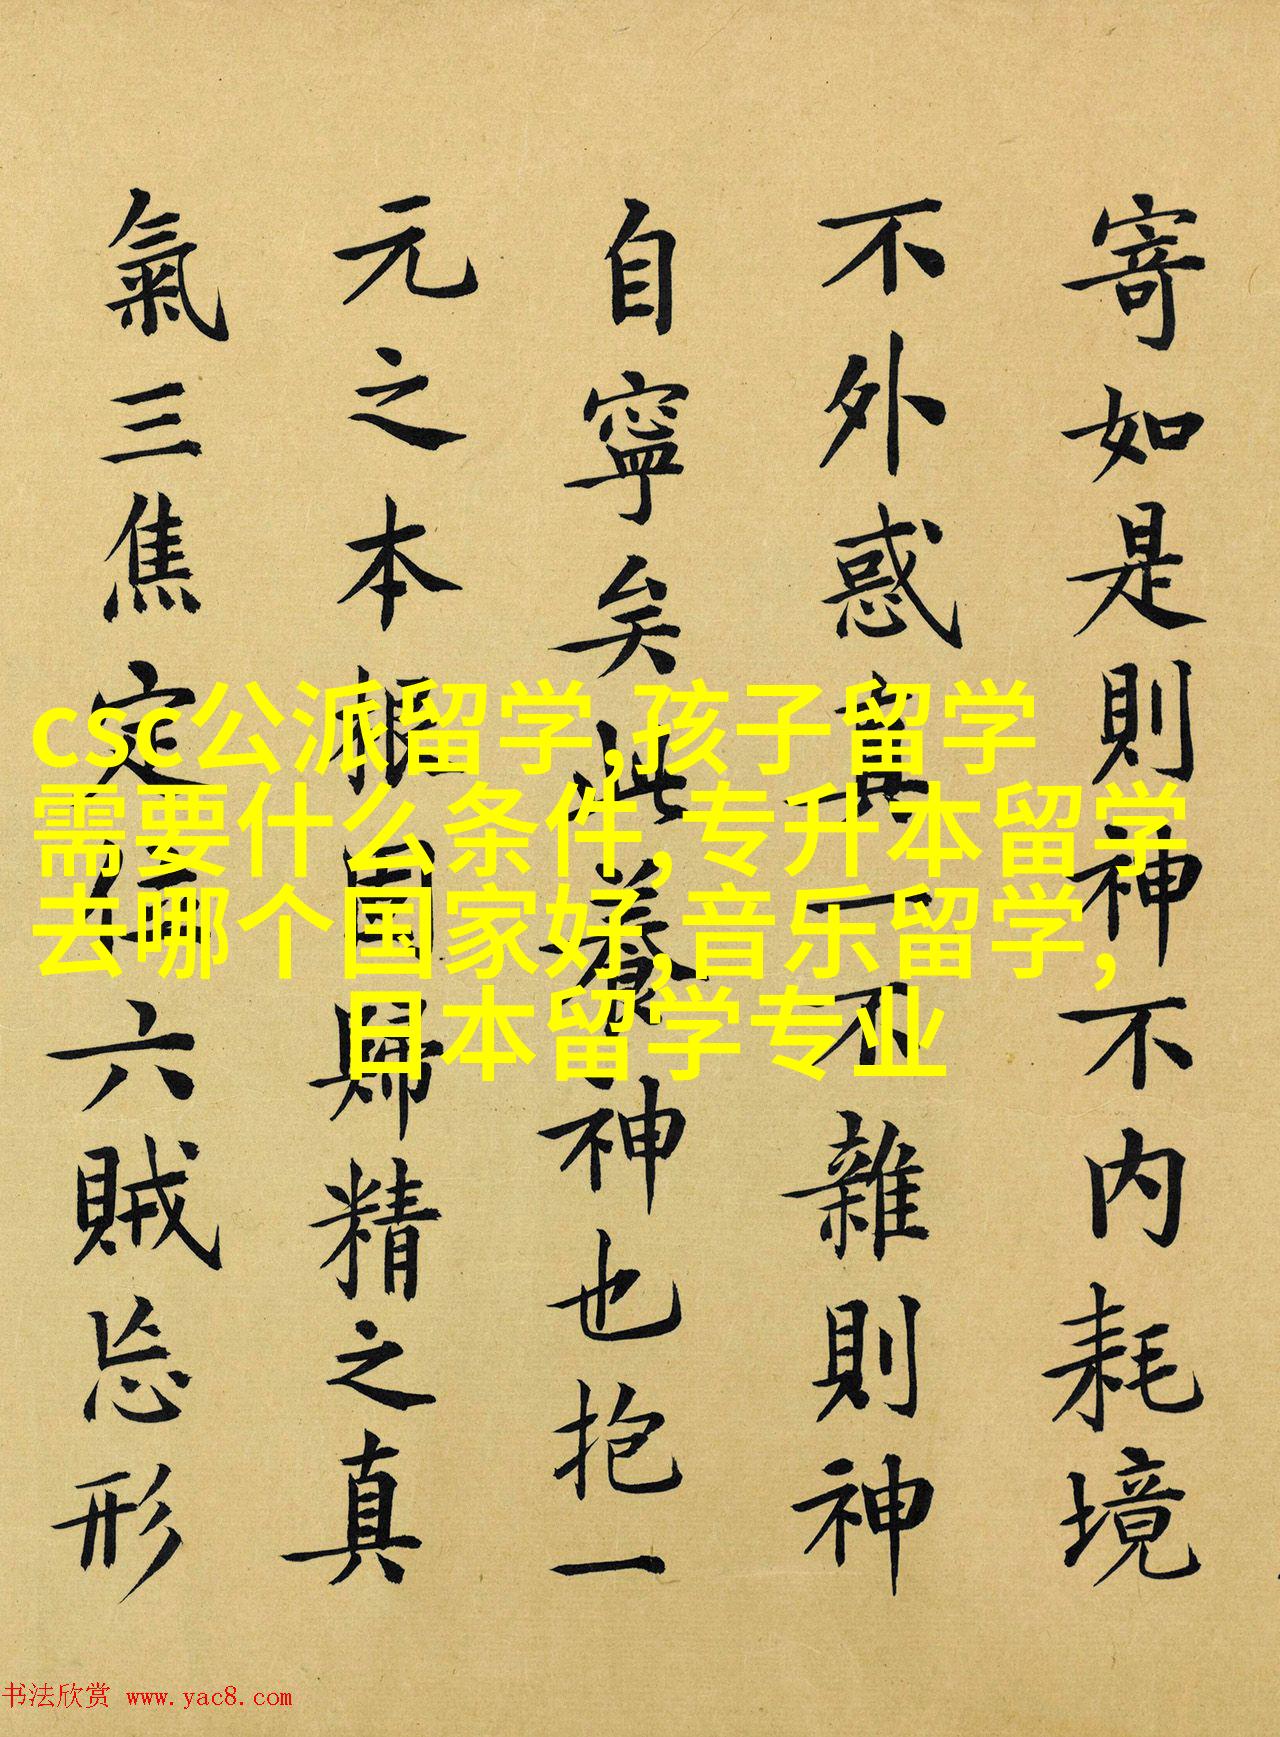 寄如是則神不内耗境
不外惑真一不雜則神
自寧矣此養神也抱一
元之本根固歸精之真
氣三焦定位六賊忘形
csc公派留学,孩子留学
需要什么条件,专升本留学
去哪个国家好,音乐留学,
日本留学专业
书法欣赏 www.yac8.com